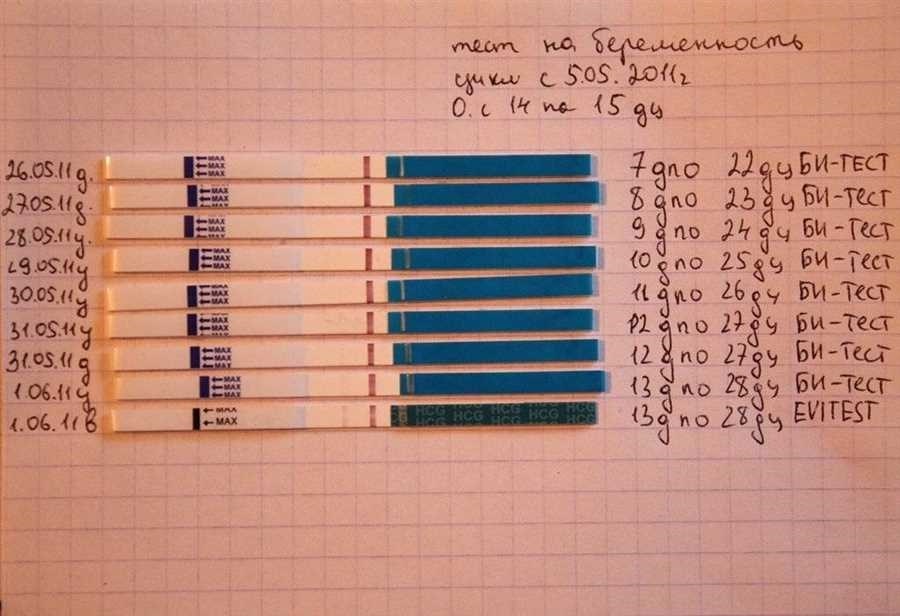 тест на беременность
цикл с 5.05.2011г
О. с 14 по 15 дц
26.05.11 д. MAX MAX MAX 7 дпо 22 дц БИ-ТЕСТ
27.05.11 д. MAX MAX MAX 8 дпо 23 дц БИ-ТЕСТ
28.05.11 у. MAX MAX MAX 9 дпо 24 дц БИ-ТЕСТ
29.05.11 у MAX MAX MAX 10 дпо 25 дц БИ-ТЕСТ
30.05.11 у MAX MAX MAX 11 дпо 26 дц БИ-ТЕСТ
31.05.11 у MAX MAX MAX 12 дпо 27 дц БИ-ТЕСТ
31.05.11 д MAX MAX 12 дпо 27 дц БИ-ТЕСТ
1.06.11 у MAX MAX MAX 13 дпо 28 дц БИ-ТЕСТ
1.06.11 в MAX MAX HCG HCG HCG HCG HCG HCG HCG HCG 13 дпо 28 дц EVITEST